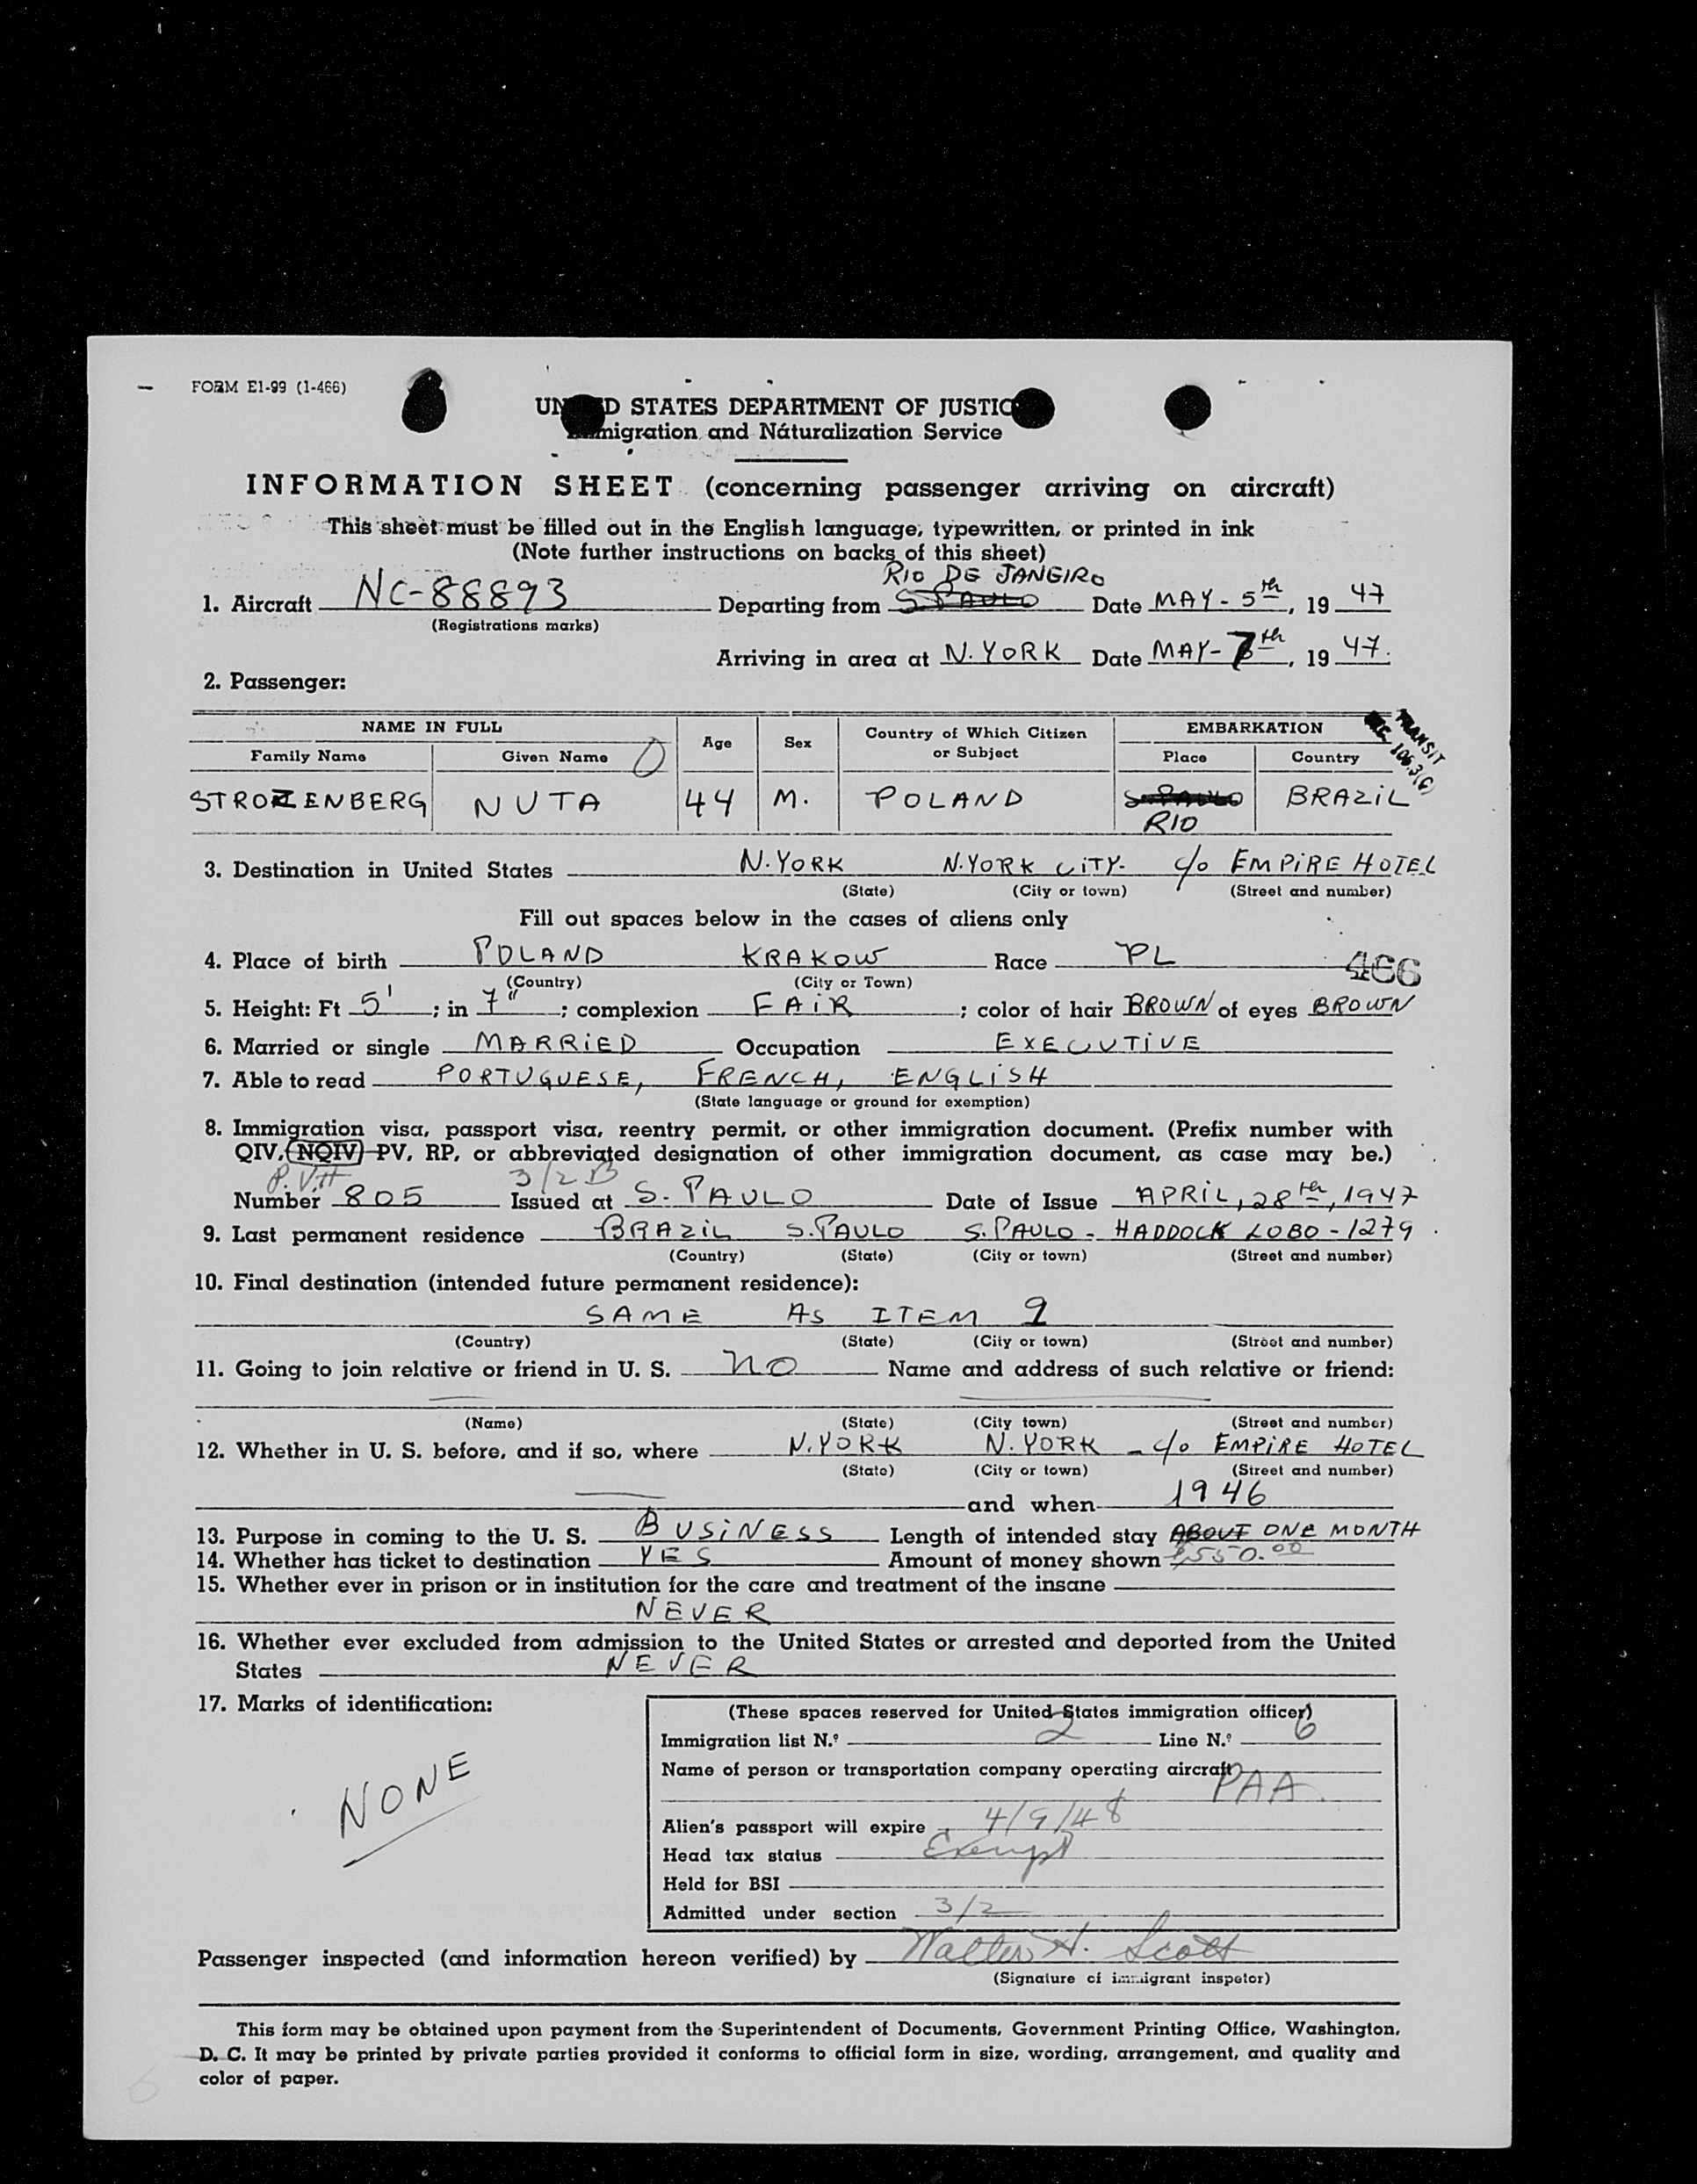 FORM E1-99 (1-466)
UN D STATES DEPARTMENT OF JUSTIC
migration and Naturalization Service
INFORMATION SHEET (concerning passenger arriving on aircraft)
This sheet must be filled out in the English language, typewritten, or printed in ink
(Note further instructions on backs of this sheet)
RIO DE JANEIRO
1. Aircraft NC-88893 Departing from S. PAULO Date MAY - 5th, 19 47
(Registrations marks)
Arriving in area at N. YORK Date MAY - 7th, 19 47.
2. Passenger:
NAME IN FULL Age Sex Country of Which Citizen or Subject EMBARKATION
Family Name Given Name Place Country
TRANSIT
106.3(6)
STROZENBERG NUTA 44 M. POLAND S. PAULO BRAZIL
RIO
3. Destination in United States N. YORK N. YORK CITY - c/o EMPIRE HOTEL
(State) (City or town) (Street and number)
Fill out spaces below in the cases of aliens only
4. Place of birth POLAND KRAKOW Race PL
466
(Country) (City or Town)
5. Height: Ft 5' ; in 7" ; complexion FAIR ; color of hair BROWN of eyes BROWN
6. Married or single MARRIED Occupation EXECUTIVE
7. Able to read PORTUGUESE, FRENCH, ENGLISH
(State language or ground for exemption)
8. Immigration visa, passport visa, reentry permit, or other immigration document. (Prefix number with
QIV, NQIV PV, RP, or abbreviated designation of other immigration document, as case may be.)
P.V.# 3/2 B
Number 805 Issued at S. PAULO Date of Issue APRIL, 28th, 1947
9. Last permanent residence BRAZIL S. PAULO S. PAULO - HADDOCK LOBO - 1279
(Country) (State) (City or town) (Street and number)
10. Final destination (intended future permanent residence):
SAME AS ITEM 9
(Country) (State) (City or town) (Street and number)
11. Going to join relative or friend in U. S. NO Name and address of such relative or friend:
(Name) (State) (City town) (Street and number)
12. Whether in U. S. before, and if so, where N. YORK N. YORK - c/o EMPIRE HOTEL
(State) (City or town) (Street and number)
and when 1946
13. Purpose in coming to the U. S. BUSINESS Length of intended stay ABOUT ONE MONTH
14. Whether has ticket to destination YES Amount of money shown $550.00
15. Whether ever in prison or in institution for the care and treatment of the insane
NEVER
16. Whether ever excluded from admission to the United States or arrested and deported from the United
States NEVER
17. Marks of identification:
NONE
(These spaces reserved for United States immigration officer)
Immigration list N.º 2 Line N.º 6
Name of person or transportation company operating aircraft
PAA.
Alien's passport will expire 4/9/48
Head tax status Exempt
Held for BSI
Admitted under section 3/2
Passenger inspected (and information hereon verified) by Walter H. Scott
(Signature of immigrant inspetor)
This form may be obtained upon payment from the Superintendent of Documents, Government Printing Office, Washington,
D. C. It may be printed by private parties provided it conforms to official form in size, wording, arrangement, and quality and
color of paper.